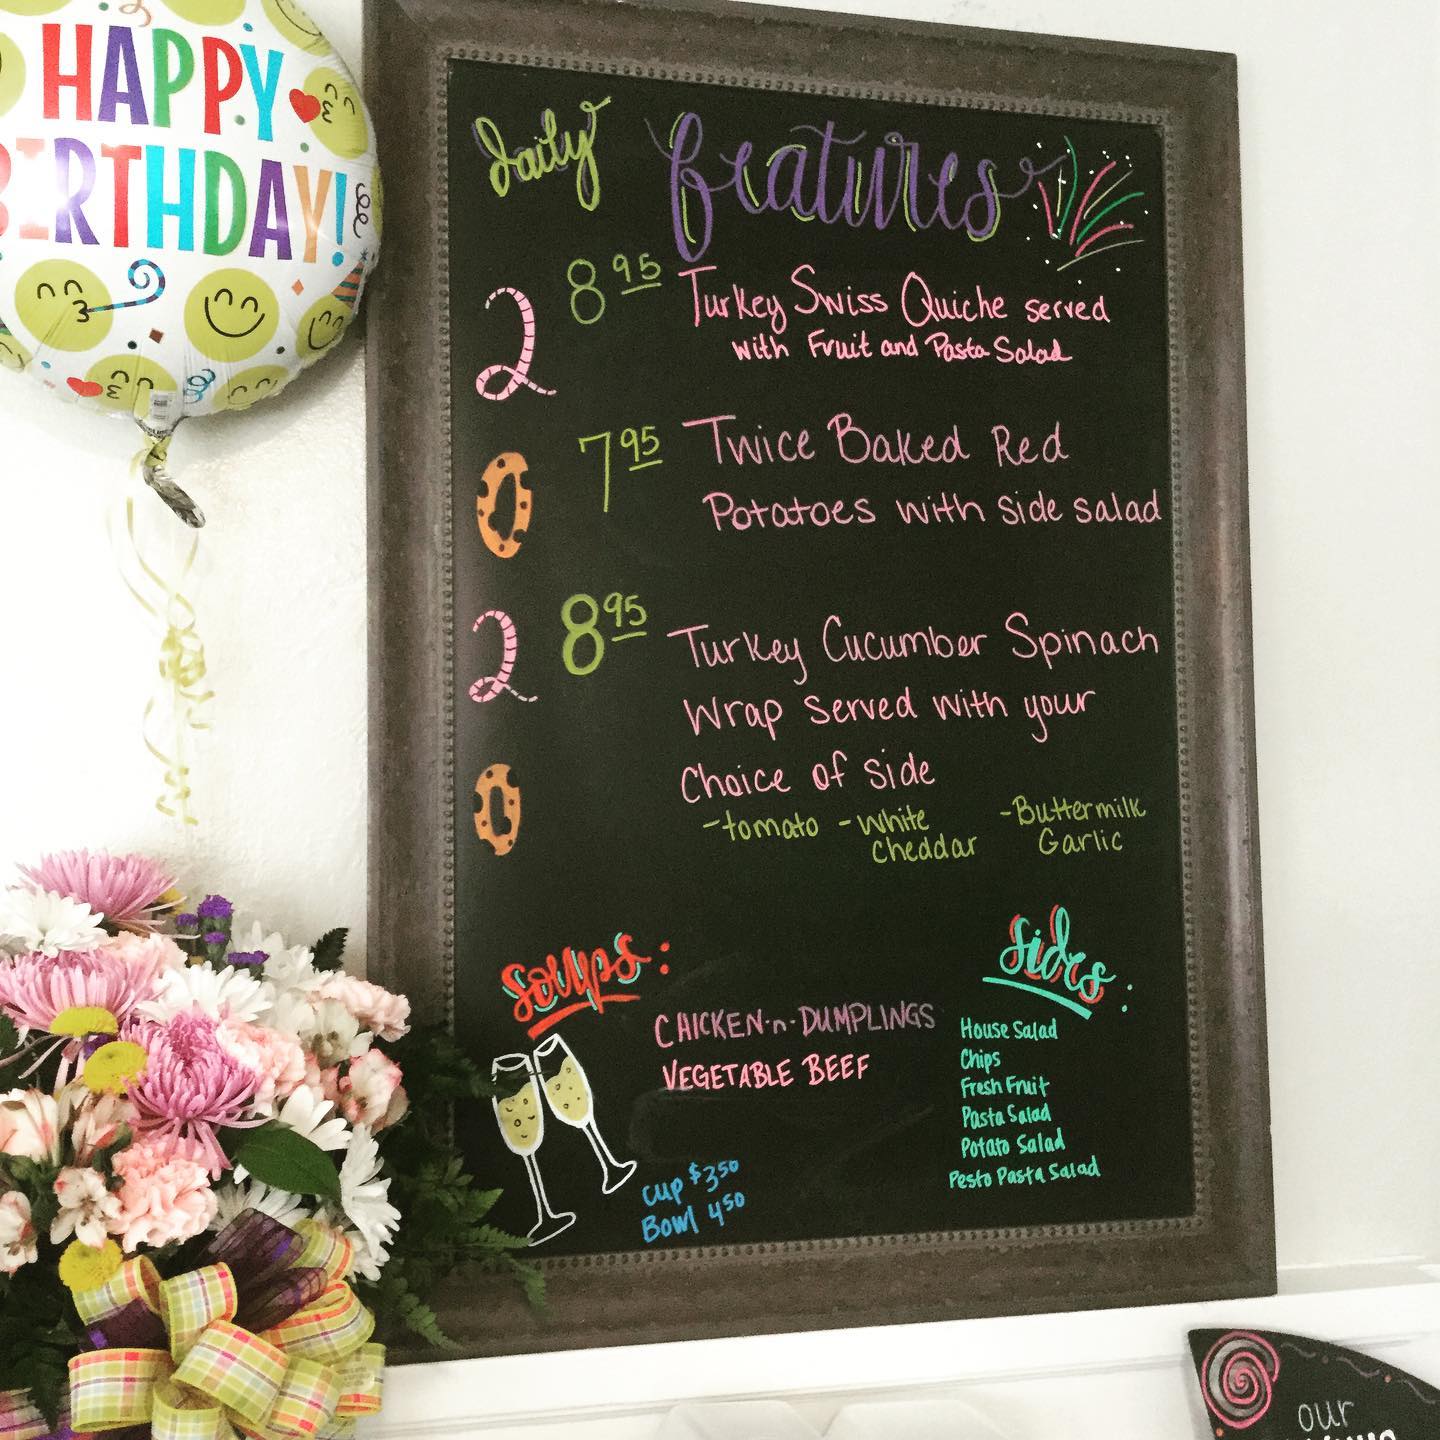 HAPPY
BIRTHDAY!
daily features
2
8 95 Turkey Swiss Quiche served
with Fruit and Pasta Salad
0
7 95 Twice Baked Red
Potatoes with side salad
2
8 95 Turkey Cucumber Spinach
Wrap served with your
Choice of side
0
-tomato -White Cheddar -Buttermilk Garlic
Soups:
CHICKEN-n-DUMPLINGS
VEGETABLE BEEF
cup $3 50
Bowl 4 50
Sides:
House Salad
Chips
Fresh Fruit
Pasta Salad
Potato Salad
Pesto Pasta Salad
our